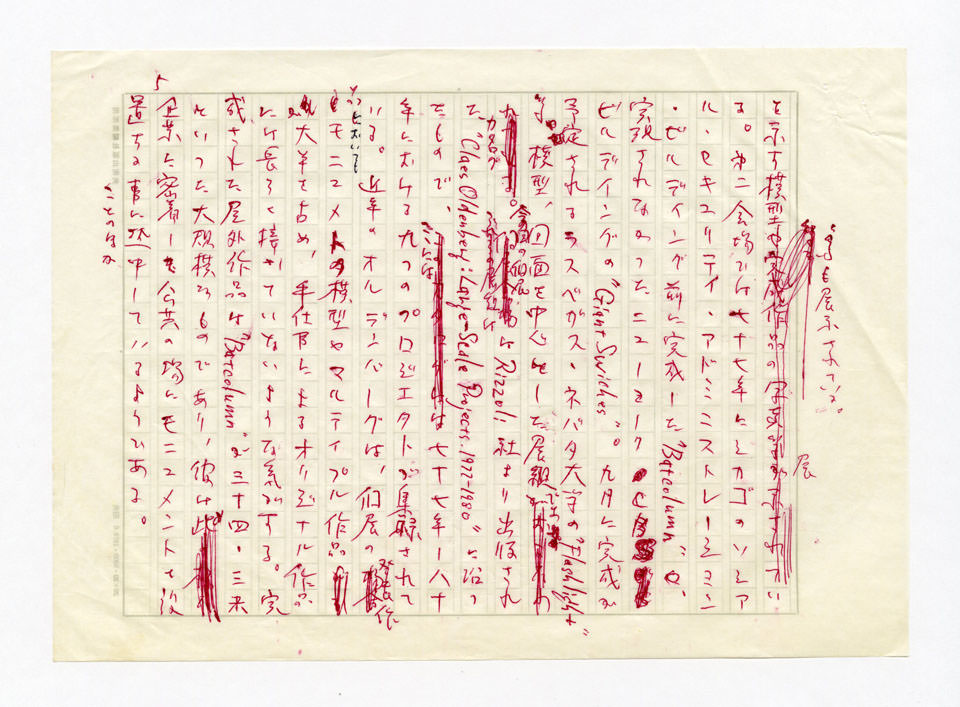 等も展示されている。
展
を示す模型や完成作品の写真が
る。第二会場では七十七年にシカゴのソシア
ル・セキュリティ・アドミニストレーション
・ビルディング前に完成した"Batcolumn"や、
実現されなかったニューヨーク
ビルディングの"Giant Swiches"。九月に完成が
予定されるラスベガス・ネバダ大学の"Flashlight"
等、模型、図面を中心とした展
カタログ
今回の個展
はRizzoli社より出版され
た"Claes Oldenberg: Large-Scale Projects. 1977-1980"と沿っ
たもので、
ここには
七十七年〜八十
年における九つのプロジェクトが集録されて
いる。近年のオルデンバーグは、個展の発表作
においても
モニュメントの模型やマルティプル作品
が大半を占め、手仕事によるオリジナル作品
には長らく接していないような気がする。完
成された屋外作品は"Batcolumn"が三十四・三米
といった大規模なものであり、彼は
5
企業に密着し公共の場にモニュメントを設
置する事に
集中しているようである。
ことのほか